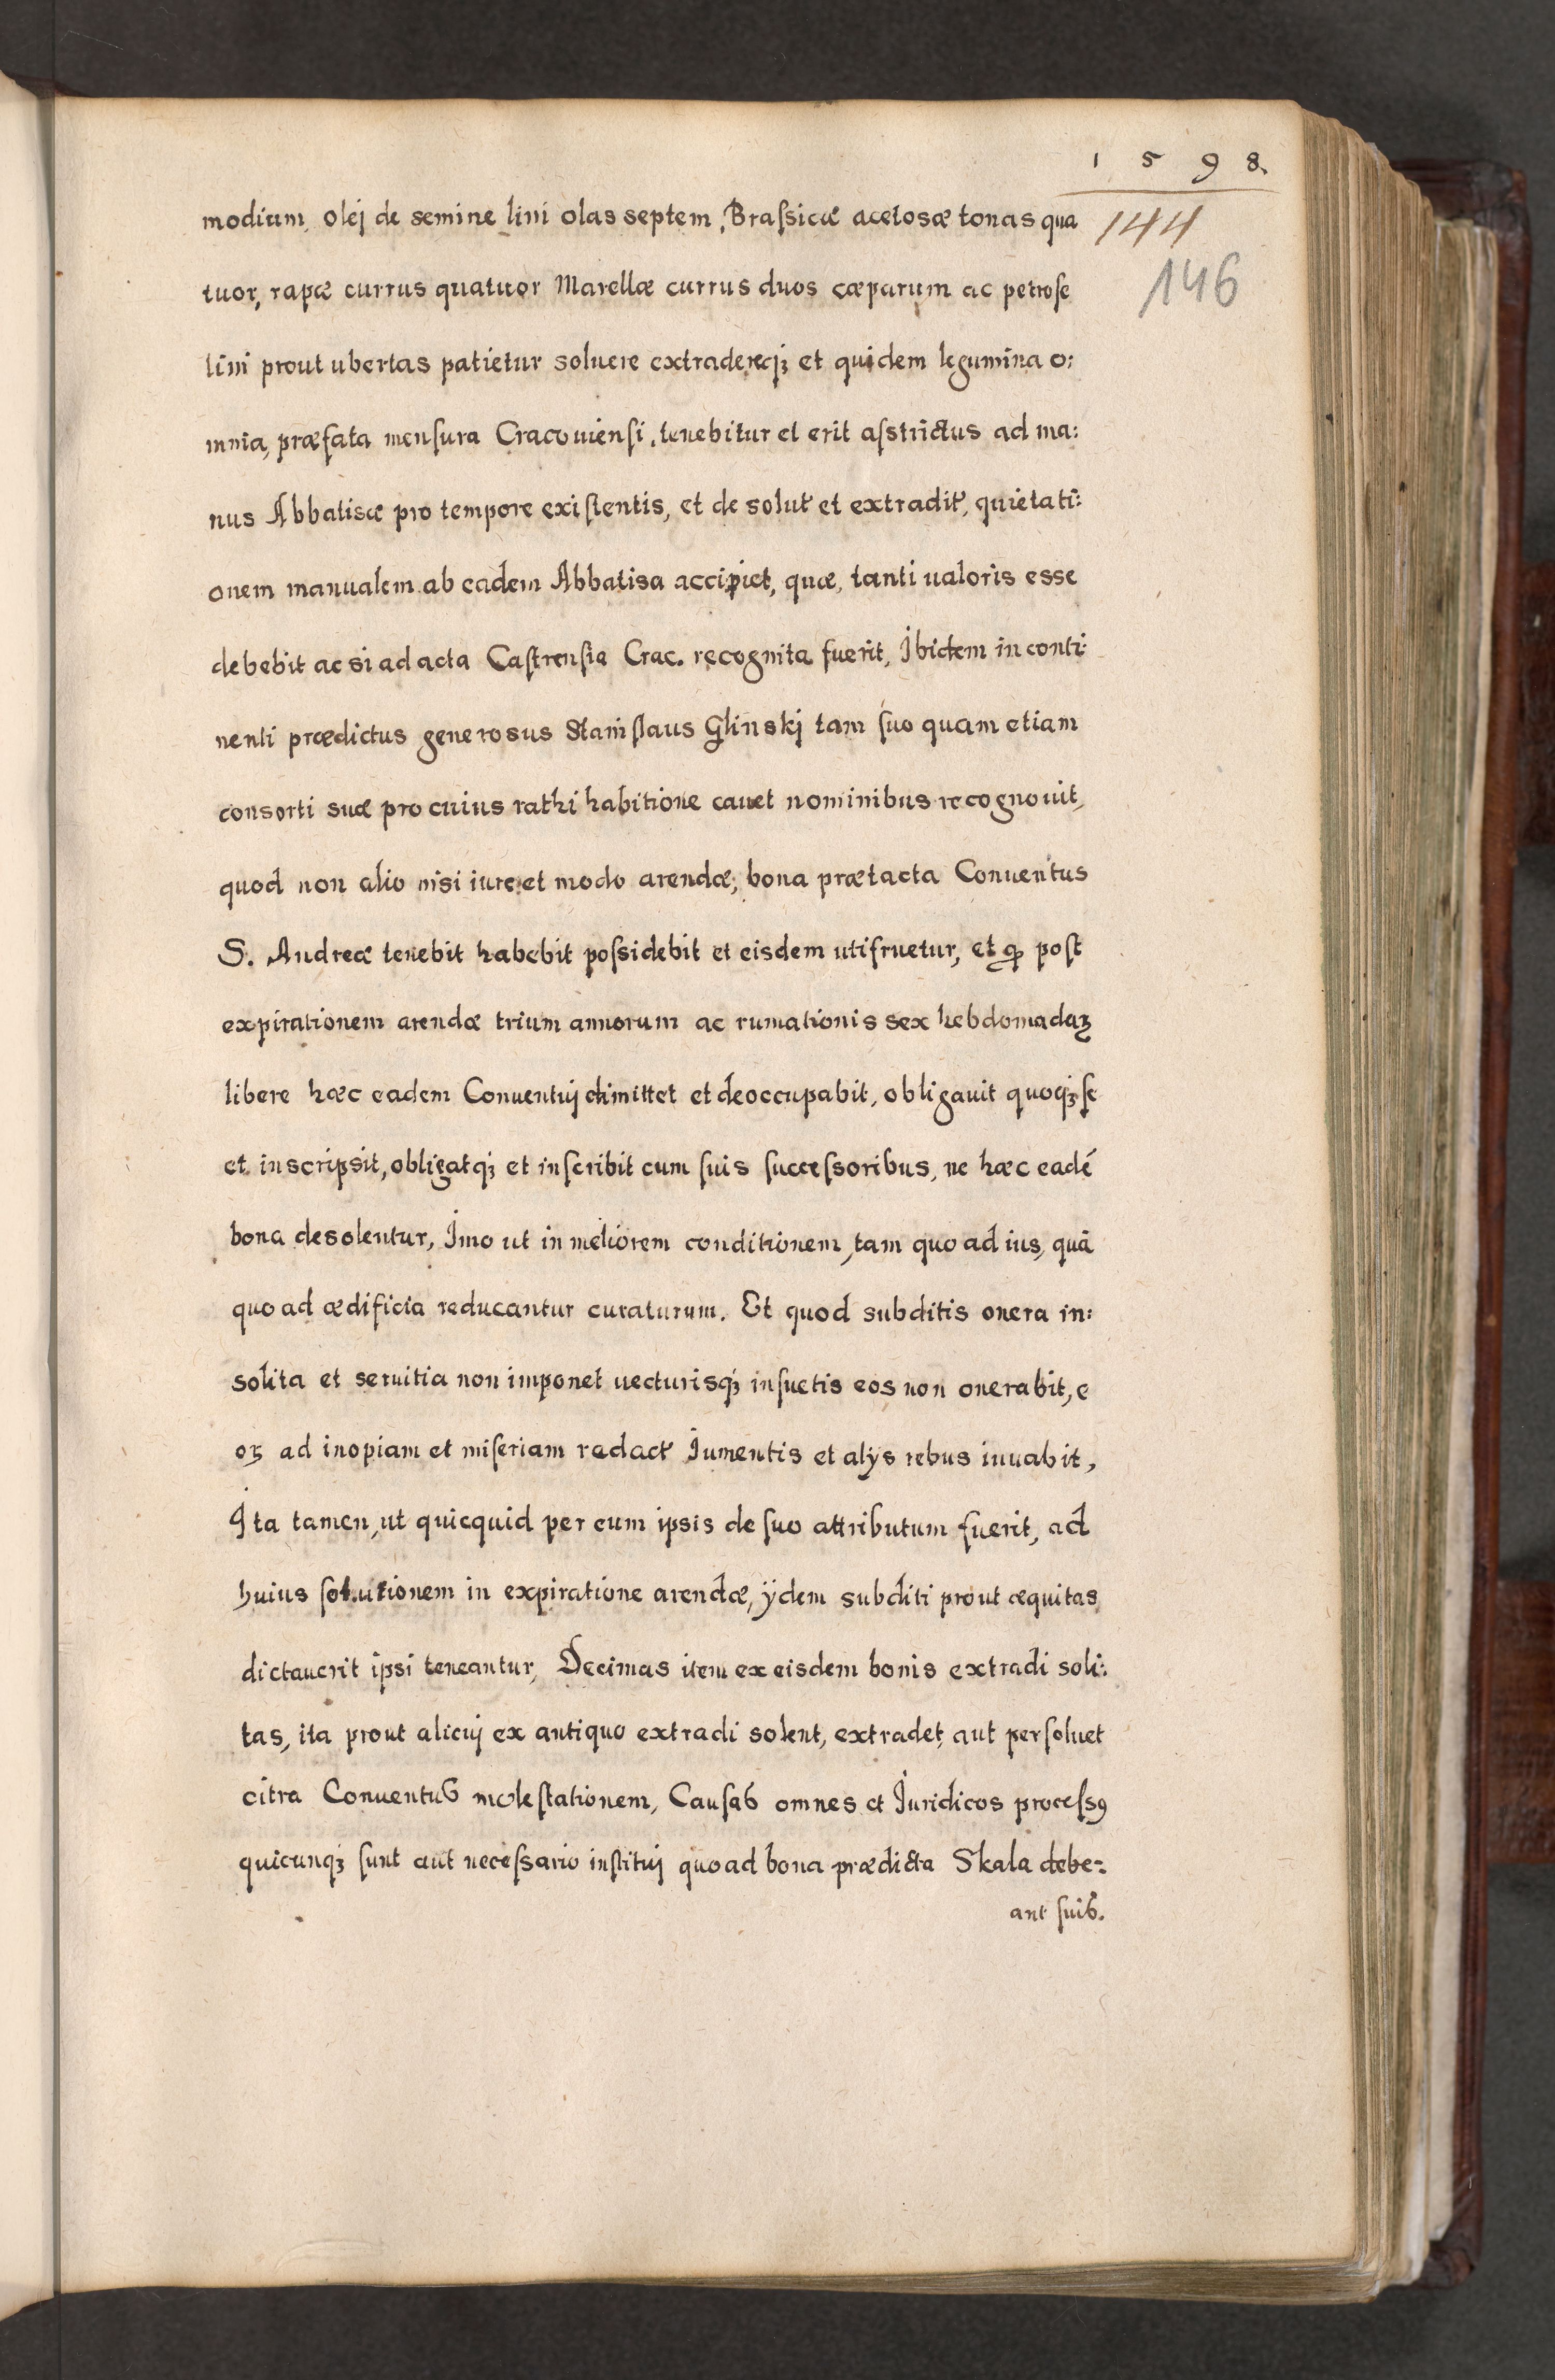 1 5 9 8.
144
146
modium, olej de semine lini olas septem, Braſsicæ acetosæ tonas qua
tuor, rapæ currus quatuor Marellæ currus duos cæparum ac petroſe
lini prout ubertas patietur soluere extradereqꝫ et quidem legumina o:
mnia, præfata menſura Cracouienſi, tenebitur et erit aſstrictus ad ma:
nus Abbatisæ pro tempore exiſtentis, et de solut̃ et extradit̃, quietati:
onem manualem ab eadem Abbatisa accipiet, quæ, tanti ualoris esse
debebit ac si ad acta Caſtrenſia Crac. recognita fuerit, Ibidem in conti:
nenti prædictus generosus Staniſlaus Glinskj tam ſuo quam etiam
consorti suæ pro cuius rathi habitione cauet nominibus recognouit,
quod non alio nisi iure et modo arendæ, bona prætacta Conuentus
S. Andreæ tenebit habebit poſsidebit et eisdem utifruetur, et ꝙ poſt
expirationem arendæ trium annorum ac rumationis sex hebdomadaꝝ
libere hæc eadem Conuentuj dimittet et deoccupabit, obligauit quoqꝫ ſe
et inscripsit, obligatqꝫ et inſcribit cum ſuis ſucceſsoribus, ne hæc eadē
bona desolentur, Imo ut in meliorem conditionem, tam quo ad ius, quā
quo ad ædificia reducantur curaturum. Et quod subditis onera in:
solita et seruitia non imponet uecturisqꝫ inſuetis eos non onerabit, e
oꝝ ad inopiam et miſeriam redact̃ Iumentis et alys rebus iuuabit,
Ita tamen, ut quicquid per eum ipsis de ſuo attributum fuerit, ad
huius ſolutionem in expiratione arendæ, ÿdem subditi prout æquitas
dictauerit ipsi teneantur, Decimas item ex eisdem bonis extradi soli:
tas, ita prout alicuj ex antiquo extradi solent, extradet, aut perſoluet
citra Conuentus moleſtationem, Cauſas omnes et Iuridicos proceſsꝰ
quicunqꝫ ſunt aut neceſsario inſtituj quo ad bona prædicta Skala debe:
ant ſuis.